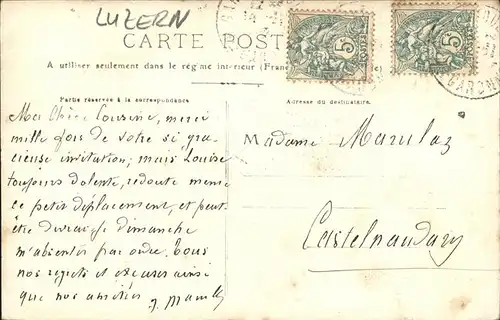 LUZERN
CARTE POST
A utiliser seulement dans le régime intérieur (Fran
Partie réservée à la correspondance
Adresse du destinataire.
5
5
Ma Chère Cousine, merci
mille fois de votre si gra-
cieuse invitation; mais Louise
toujours dolente, redoute même
ce petit déplacement, et peut-
être devrai-je dimanche
m'absenter par ordre. Tous
nos regrets et excuses ainsi
que nos amitiés
Madame Marulaz
Castelnaudary